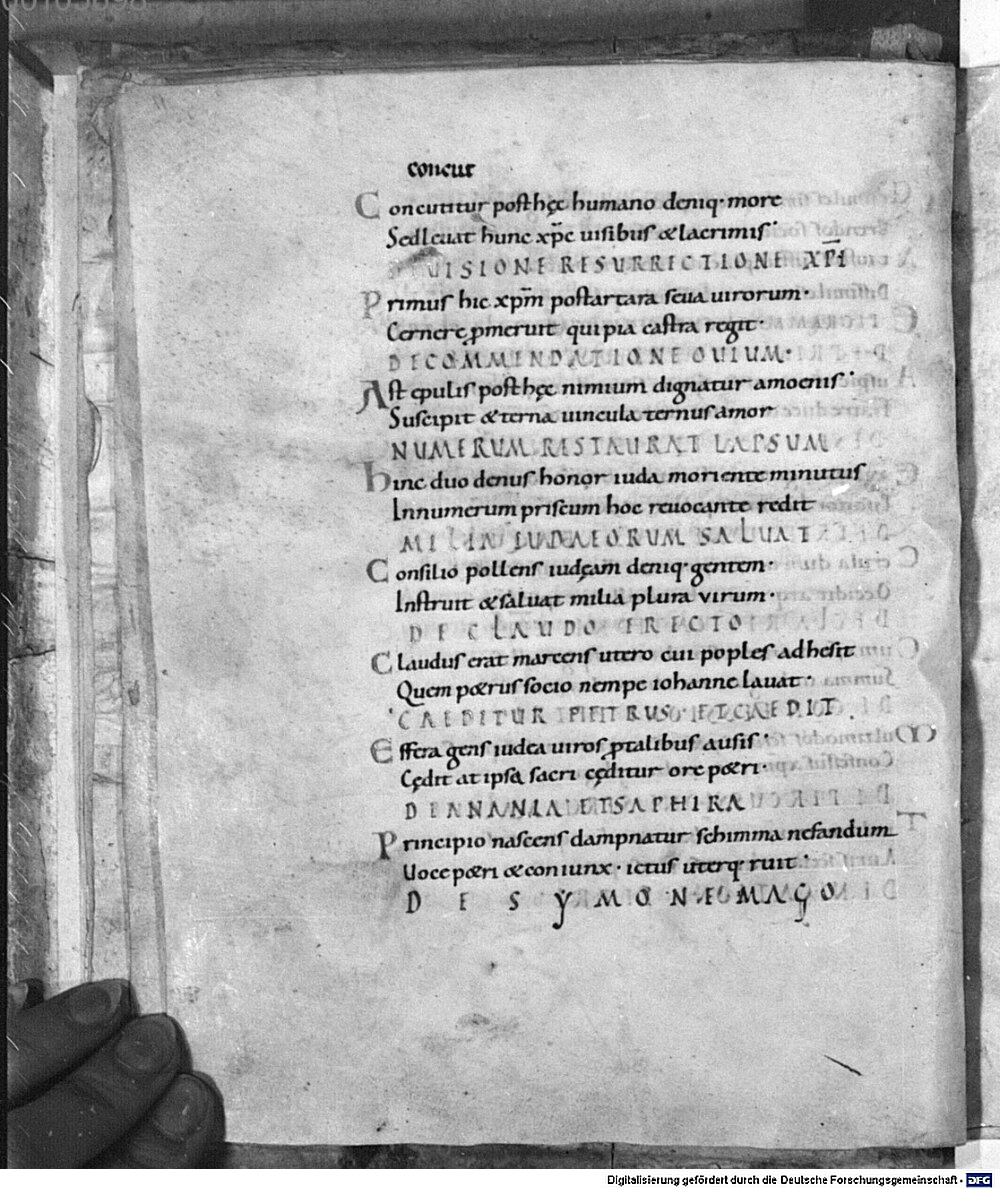 concut
Concutitur post hęc humano deniq· more
Sed leuat hunc xp̄c uisibus & lacrimis·
VISIONE RESURRECTIONE XP̅I
Primus hic xp̄m post tartara seua uirorum·
Cernere ꝓmeruit qui pia castra regit·
DE COMMENDATIONE OUIUM·
Ast epulis post hęc nimium dignatur amoenis·
Suscipit & terna uincula ternus amor
NUMERUM RESTAURAT LAPSUM
Hinc duo denus honor iuda moriente minutus
In numerum priscum hoc reuocante redit
MILIA IUDAEORUM SALUAT
Consilio pollens iudęam deniq· gentem·
Instruit & saluat milia plura virum·
DE CLAUDO ERECTO
Claudus erat marcens utero cui poples adhesit
Quem p&rus socio nempe iohanne leuat·
CAEDITUR PETRUS ET CAEDIT
Effera gens iudea uiros ꝓ talibus ausis·
Cędit at ipsa sacri cęditur ore p&ri·
DE ANNANIA ET SAPHIRA
Principio nascens dampnatur schimma nefandum
Uoce p&ri & coniunx· ictus uterq· ruit·
DE SYMONE MAGO
Digitalisierung gefördert durch die Deutsche Forschungsgemeinschaft - DFG